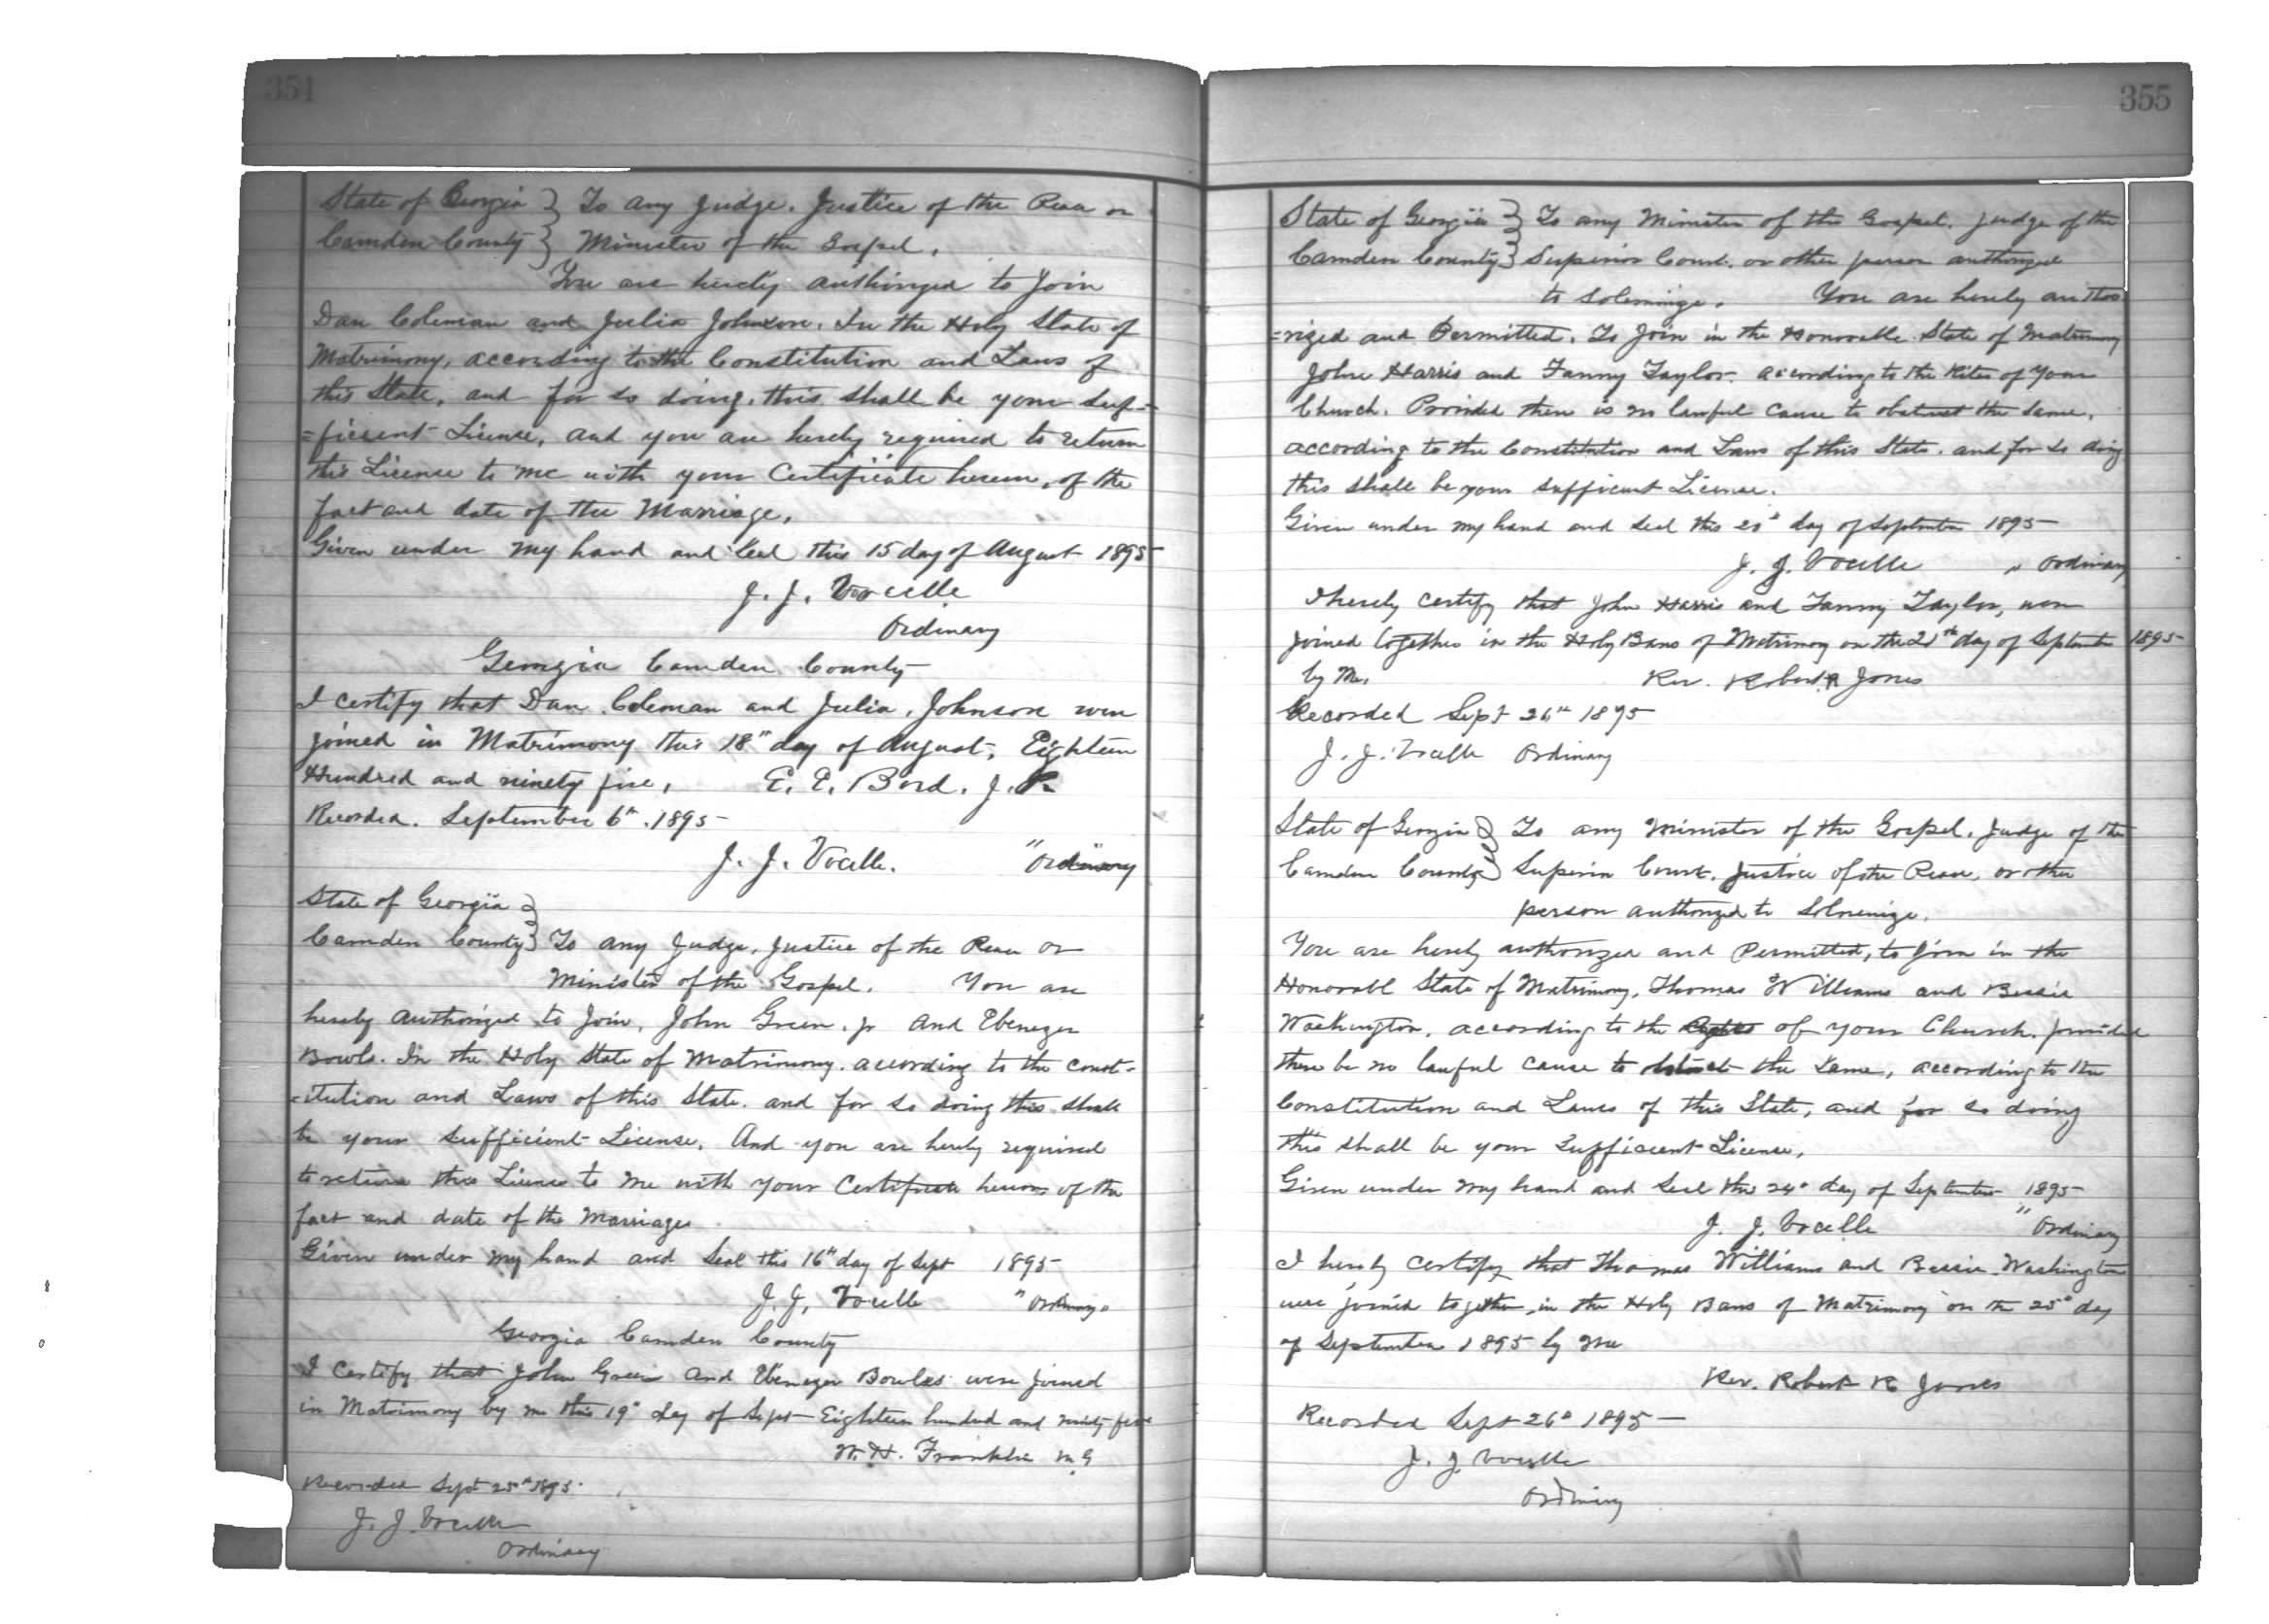 354
State of Georgia } To any Judge. Justice of the Peace or
Camden County } Minister of the Gospel.
You are hereby authorized to Join
Dan Coleman and Julia Johnson. In the Holy State of
Matrimony, according to the Constitution and Laws of
this State, and for so doing, this shall be your Suf-
=ficient License, and you are hereby required to return
this License to me with your Certificate hereon, of the
fact and date of the Marriage.
Given under my hand and Seal this 15 day of August 1895
J. J. Vocelle
Ordinary
Georgia Camden County
I certify that Dan. Coleman and Julia. Johnson were
joined in Matrimony this 18" day of August, Eighteen
Hundred and ninety five, E. E. Bird. J. P.
Recorded. September 6th. 1895
J. J. Vocelle. "Ordinary
State of Georgia }
Camden County } To any Judge, Justice of the Peace or
Minister of the Gospel. You are
hereby authorized to Join, John Green. jr and Ebenezer
Bowls. In the Holy State of Matrimony. according to the const-
-itution and Laws of this State. and for so doing this shall
be your sufficient License. And you are hereby required
to return this License to me with your Certificate hereon of the
fact and date of the Marriage
Given under my hand and Seal this 16th day of Sept 1895
J. J. Vocelle "Ordinary"
Georgia Camden County
I certify that John Green and Ebenezer Bowles were joined
in Matrimony by me this 19" day of Sept Eighteen hundred and ninety five
W. H. Franklin M. G
Recorded Sept 25th 1895.
J. J. Vocelle
Ordinary
355
State of Georgia } To any Minister of the Gospel. Judge of the
Camden County } Superior Court. or other person authorized
to Solemnize. You are hereby autho
=rized and Permitted. To Join in the Honorable State of Matrimony
John Harris and Fanny Taylor. according to the Rites of your
Church. Provided there is no lawful cause to obstruct the same.
according to the Constitution and Laws of this State. and for so doing
this shall be your sufficient License.
Given under my hand and Seal this 20" day of September 1895
J. J. Vocelle " Ordinary
I hereby certify that John Harris and Fanny Taylor, were
joined together in the Holy Bans of Matrimony on the 21th day of September 1895
by Me, Rev. Robert R Jones
Recorded Sept 26th 1895
J. J. Vocelle Ordinary
State of Georgia } To any Minister of the Gospel. Judge of the
Camden County } Superior Court. Justice of the Peace, or other
person authorized to Solmenize.
You are hereby authorized and Permitted, to Join in the
Honorabl State of Matrimony, Thomas Williams and Bessie
Washington. according to the Rites of your Church. provided
there be no lawful cause to obstruct the same, according to the
Constitution and Laws of this State, and for so doing
this shall be your Sufficient License,
Given under my hand and Seal this 24" day of September 1895
J. J. Vocelle " Ordinary
I hereby certify that Thomas Williams and Bessie Washington
were joined together in the Holy Bans of Matrimony on the 25" day
of September 1895 by me
Rev. Robert R Jones
Recorded Sept 26" 1895
J. J. Vocelle
Ordinary